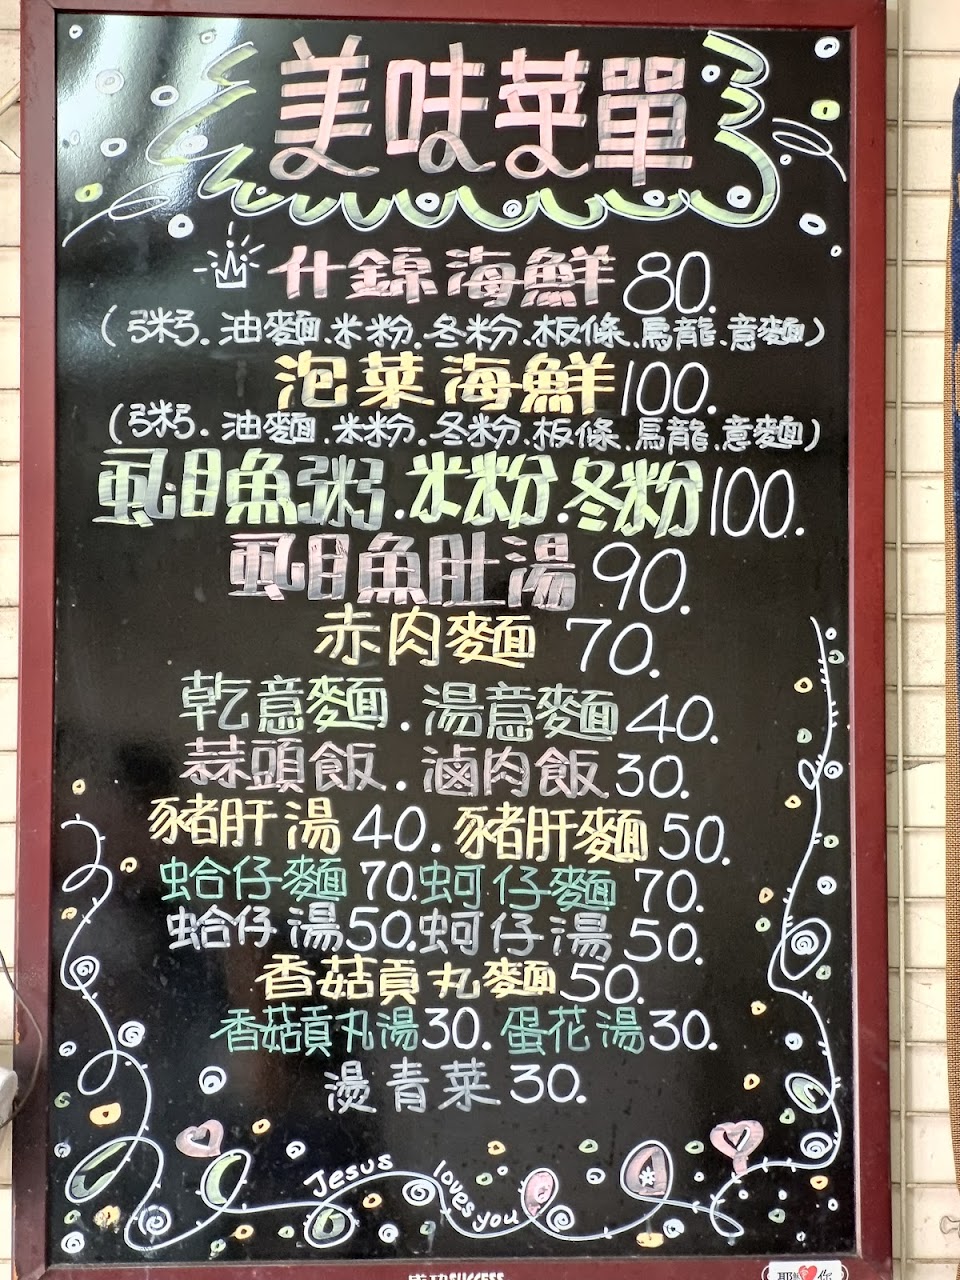 美味菜單
什錦海鮮 80.
(粥.油麵.米粉.冬粉.板條.烏龍.意麵)
泡菜海鮮 100.
(粥.油麵.米粉.冬粉.板條.烏龍.意麵)
虱目魚粥.米粉.冬粉 100.
虱目魚肚湯 90.
赤肉麵 70.
乾意麵.湯意麵 40.
蒜頭飯.滷肉飯 30.
豬肝湯 40. 豬肝麵 50.
蛤仔麵 70. 蚵仔麵 70.
蛤仔湯 50. 蚵仔湯 50.
香菇貢丸麵 50.
香菇貢丸湯 30. 蛋花湯 30.
燙青菜 30.
Jesus loves you
成功SUCCESS